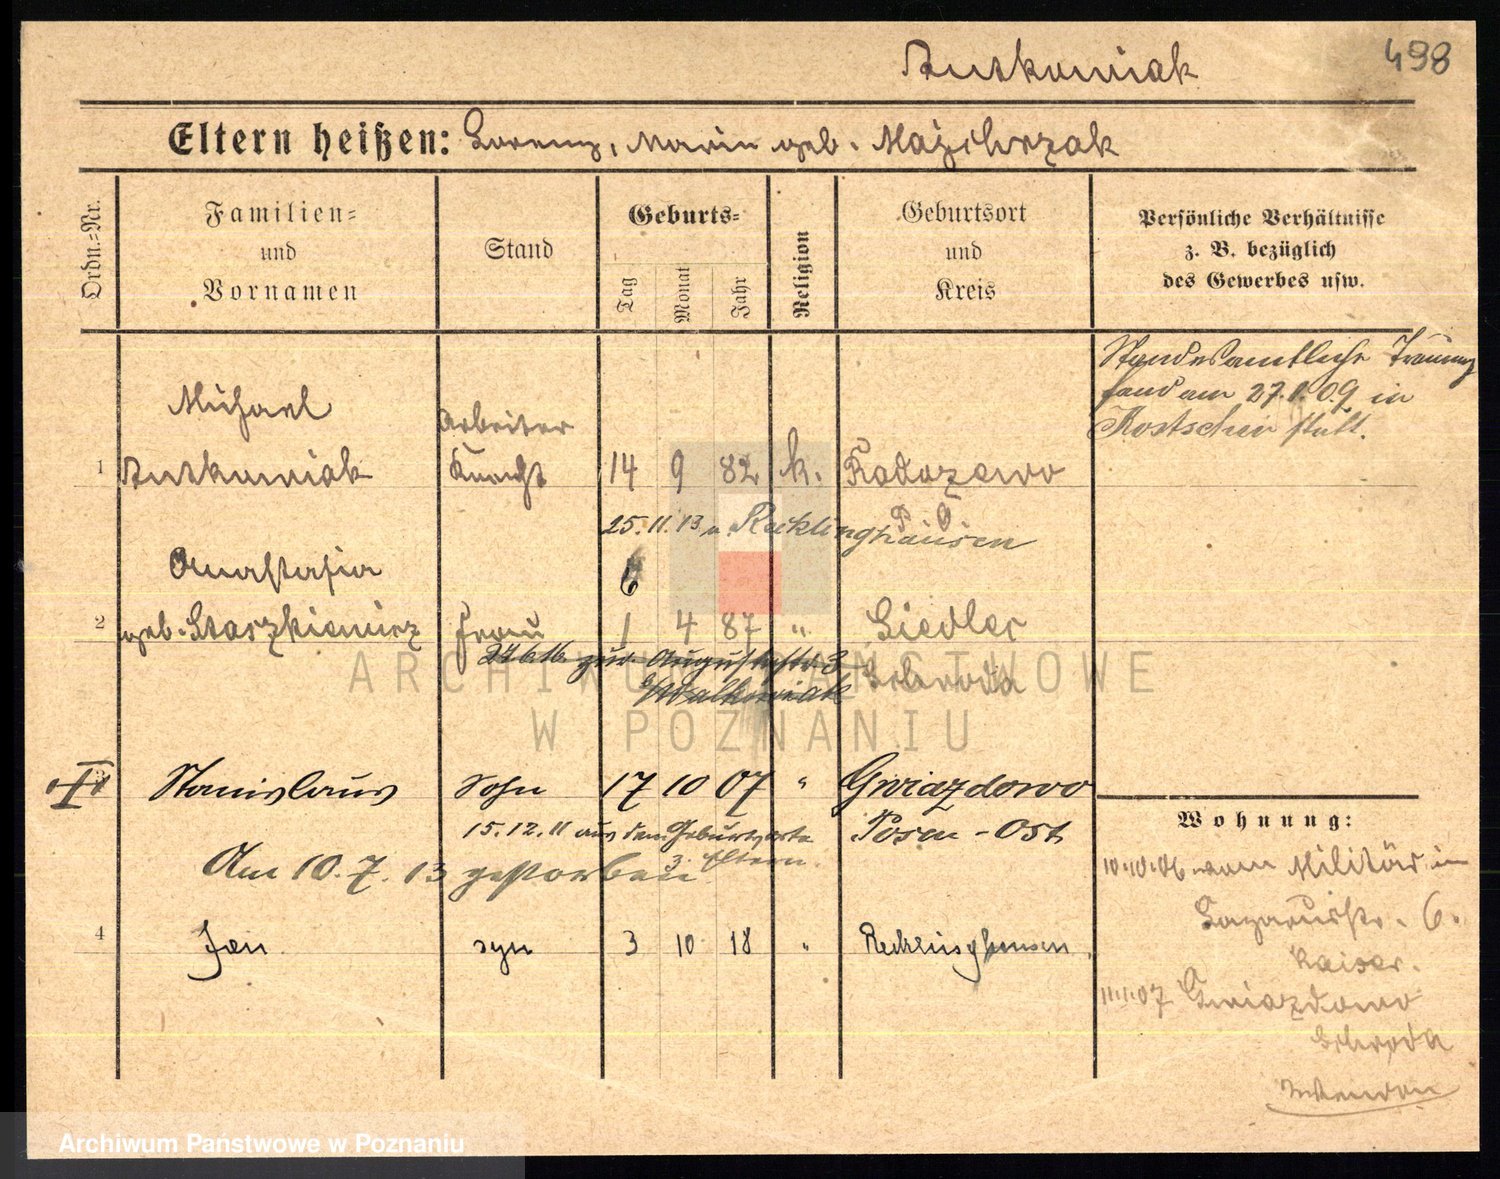 Rutkowniak 498
Eltern heißen: Lorenz, Marie geb. Majchrzak
Ordn.=Nr.
Familien=
und
Vornamen
Stand
Geburts=
Tag
Monat
Jahr
Religion
Geburtsort
und
Kreis
Persönliche Verhältnisse
z. B. bezüglich
des Gewerbes usw.
Standesamtliche Trauung
fand am 27.1.09 in
Kostschin statt.
Michael
Arbeiter
1 Knecht 14 9 82 k. Radozewo
P O
25.11.13 n. Recklinghausen
Anastasia
6
2 geb. Staszkiewicz Frau 1 4 87 " Siedlec
Schroda
27 6 16 zur. Auguststr. 3
b/Walkowiak
3 Stanislaus Sohn 17 10 07 " Gwiazdowo
Posen-Ost
15.12.11 aus dem Geburtsorte
z. Eltern.
Am 10.7.13 gestorben
4 Jan syn 3 10 18 " Recklinghausen.
Wohnung:
10.10.06 vom Militär in
Lazarusstr. 6.
Kaiser.
11.1.07 Gwiazdowo
Schroda
ARCHIWUM PAŃSTWOWE
W POZNANIU
Archiwum Państwowe w Poznaniu